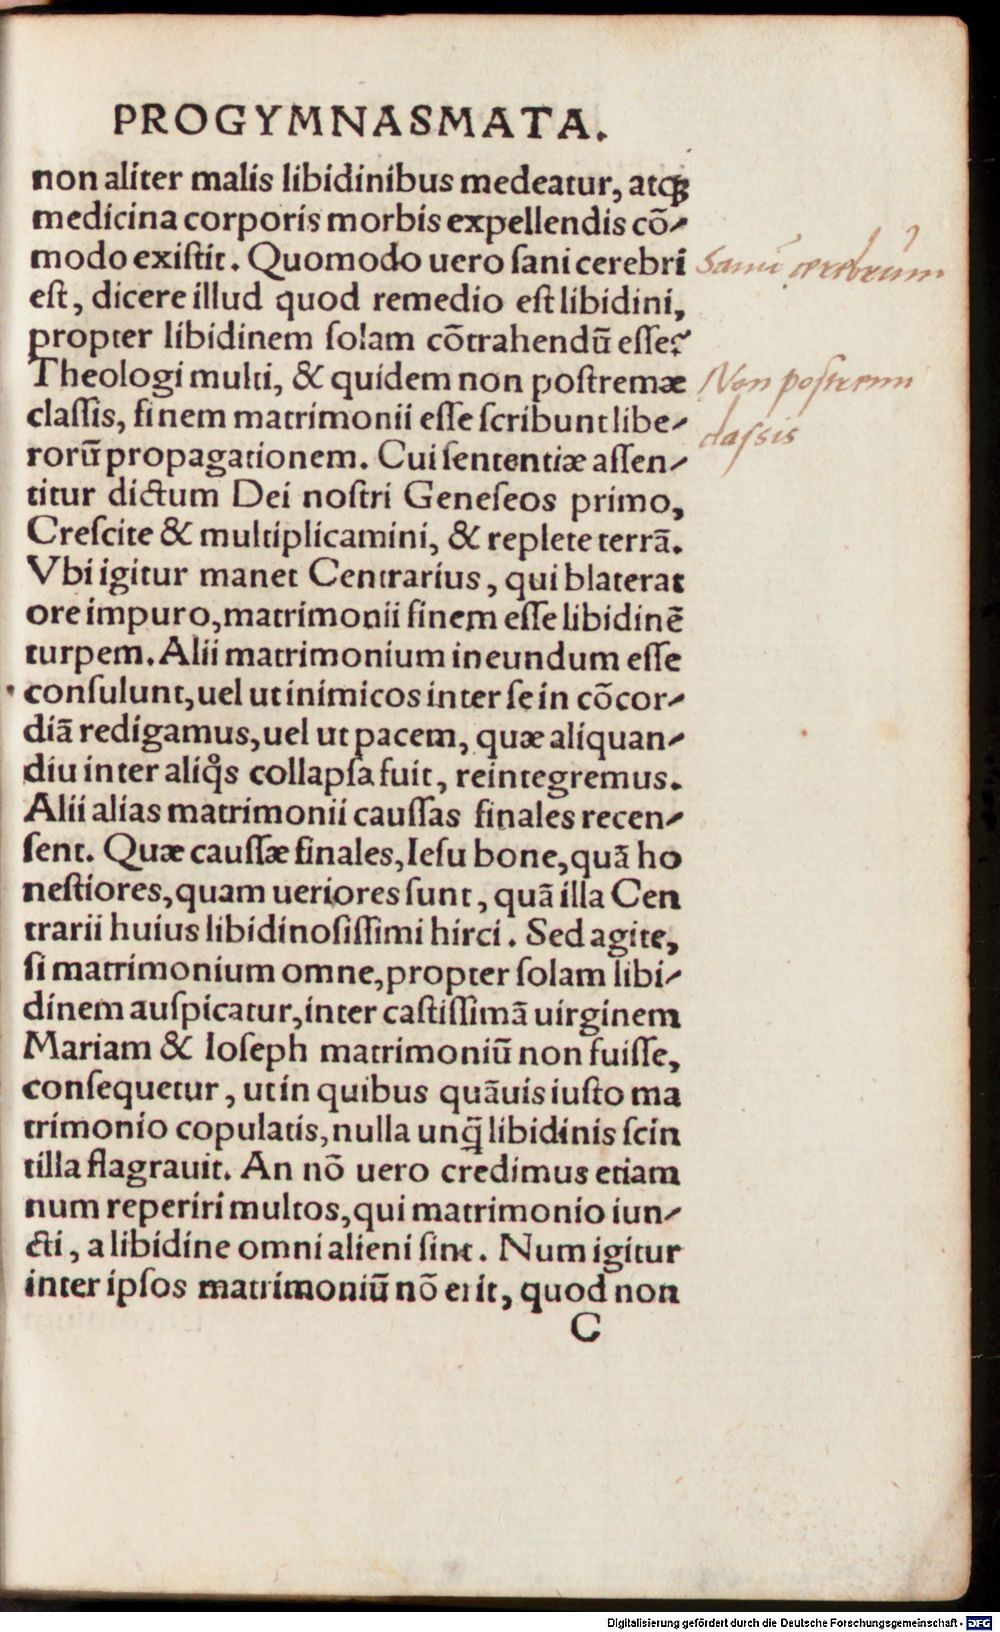 PROGYMNASMATA.
non aliter malis libidinibus medeatur, atqꝫ
medicina corporis morbis expellendis cõ-
modo exiſtit. Quomodo uero ſani cerebri
eſt, dicere illud quod remedio eſt libidini,
propter libidinem ſolam cõtrahendũ eſſe?
Theologi multi, & quidem non poſtremæ
claſſis, finem matrimonii eſſe ſcribunt libe-
rorũ propagationem. Cui ſententiæ aſſen-
titur dictum Dei noſtri Geneſeos primo,
Creſcite & multiplicamini, & replete terrã.
Vbi igitur manet Centrarius, qui blaterat
ore impuro, matrimonii finem eſſe libidinẽ
turpem. Alii matrimonium ineundum eſſe
conſulunt, uel ut inimicos inter ſe in cõcor-
diã redigamus, uel ut pacem, quæ aliquan-
diu inter aliqͦs collapſa fuit, reintegremus.
Alii alias matrimonii cauſſas finales recen-
ſent. Quæ cauſſæ finales, Ieſu bone, quã ho
neſtiores, quam ueriores ſunt, quã illa Cen
trarii huius libidinoſiſſimi hirci. Sed agite,
ſi matrimonium omne, propter ſolam libi-
dinem auſpicatur, inter caſtiſſimã uirginem
Mariam & Ioſeph matrimoniũ non fuiſſe,
conſequetur, ut in quibus quãuis iuſto ma
trimonio copulatis, nulla unq̃ libidinis ſcin
tilla flagrauit. An nõ uero credimus etiam
num reperiri multos, qui matrimonio iun-
cti, a libidine omni alieni ſint. Num igitur
inter ipſos matrimoniũ nõ erit, quod non
C
Sanũ cerebrum
Non poſtremi
claſsis
Digitalisierung gefördert durch die Deutsche Forschungsgemeinschaft - DFG